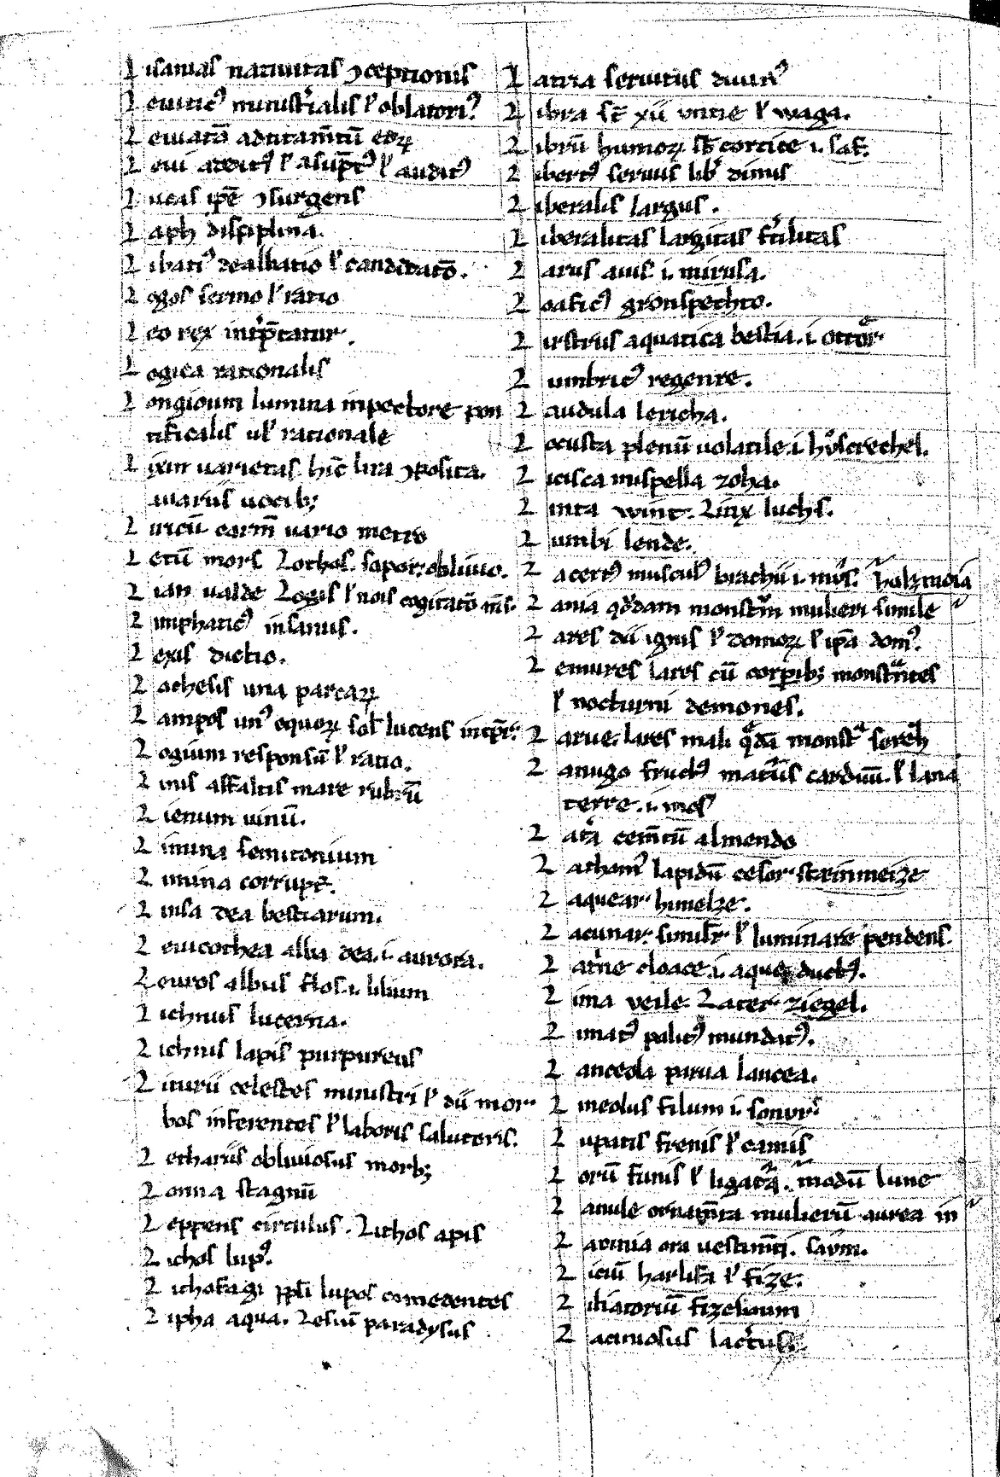 L isanias natiuitas ↄceptionis
L euitic᷒ minist̾ialis ł oblatori᷒
L euiatō additam̄tū eoꝝ
L eui addit᷒ ł asūpt᷒ ł audit᷒
L ucas ip̄e ↄsurgens
L aph disciplina.
L ibati᷒ dealbatio ł candidatō.
L ogos sermo ł ratio
L eo rex int̾p̄tatur.
L ogica rationalis
L ongioum lumina inpectore pon
tificalis ul̛ rationale
L ixin uarietas hīc lira ↄposita.
uariis uocib;
L iricū carm̄ uario metro
L etū mors Lothos. sapor: obliuio.
L ian ualde Logis ł nois cogitatō
L imphatic᷒ insanus.
L exis dictio.
L achesis una parcaꝝ
L ampos un᷒ equoꝝ sol̛ lucens
L ogium responsū ł ratio.
L inis asfaltis mare rubrū
L ienum uinū.
L imina semitonium
L imina corrupt̄.
L uisa dea bestiarum.
L euicothea alba dea .i. aurora.
L euros albus flos .i. lilium
L ichnus lucerna.
L ichnis lapis purpureus
L iturii celestes ministri ł dii mor
bos inferentes ł laboris salutoris.
L ethariis obliuiosus morb;
L anna stagnū
L eppens circulus. Lithos apis
L ichos lup᷒.
L ichofagi ppl̄i lupos comedentes
L ipha aqua. Lesiū paradysus
L atria seruitus diuin᷒
L ibra st̄ xii untie ł waga.
L ibrū humoꝝ st̄ cortice .i. saf.
L ibert᷒ seruus lib̾ dimis
L iberalis largus.
L iberalitas largitas fr̄ilitas
L arus auis .i. mirusa.
L oafic᷒ gronspechto.
L ustrius aquatica bestia .i. ottar
L umbric᷒ regenre.
L audula lericha.
L ocusta plenū uolatile .i. hoͧscrechel.
L icisca mispella zoha.
L inta wint. Linx luchs.
L umbi lende.
L acert᷒ muscul᷒ brachii .i. mus. holzmoia
L ania qd̄am monstrū mulieri simile
L ares dii ignis ł domoꝝ ł ip̄a dom᷒.
L emures lares cū corꝑib; monstr̄ntes
ł nocturni demones.
L arue. lares mali qd̄a monstra
L anugo fruct᷒ mat̾iis carduū. ł lana
terre .i. mos
L at̾a cem̄tū almendo
L athom᷒ lapidū cesor. stainmeize
L aquear himelze.
L acunar. simil̾r ł luminare pendens.
L at̾ne cloace .i. aque duct᷒.
L ima veile. Later ziegel.
L imat᷒ polit᷒ mundat᷒.
L anceola parua lancea.
L ineolus filum .i. sonur᷒
L upatis frenis ł camis
L orū funis ł ligat̾a. modū lune
L anule ornam̄ta mulierū aurea in
L acinia ora uestim̄ti. saum.
L iciū harlifa ł fize.
L itiatoriū fizelinum
L acinosus lac̾tus.